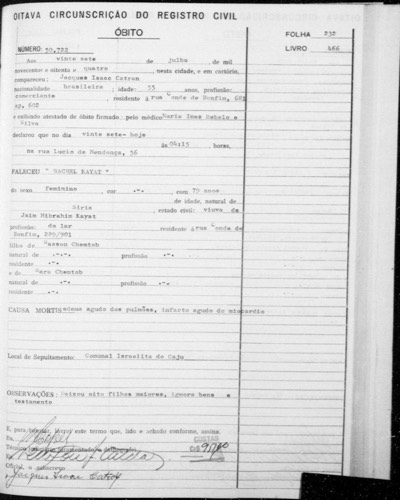 OITAVA CIRCUNSCRIÇÃO DO REGISTRO CIVIL
ÓBITO
FOLHA 232
LIVRO 466
NÚMERO: 50,722
Aos vinte sete de julho de mil
novecentos e oitenta e quatro, nesta cidade, e em cartório,
compareceu: Jacques Isaac Cotran
nacionalidade brasileiro; idade: 55 anos, profissão:
comerciante, residente à rua Conde de Bonfim, 685
ap. 602
e exibindo atestado de óbito firmado pelo médico Maria Inez Rebelo e
Silva
declarou que no dia vinte sete- hoje
às 04:15, horas,
na rua Lucio de Mendonça, 56
FALECEU "RACHEL KAYAT"
do sexo Feminino, cor -"-, com 79 anos
de idade, natural de
Síria, estado civil: viuva de
Jaim Mibrahim Kayat
profissão: do lar residente à rua Conde de
Bonfim, 229/901
filho de Chemtob
natural de -"-"- profissão -"-
residente -"-
e de Chemtob
natural do -"-"- profissão -"-
residente -"-
CAUSA MORTIS: edema agudo dos pulmões, infarto agudo do miocardio
Local de Sepultamento: Comunal Israelita de Caju
OBSERVAÇÕES: Deixou oito filhos maiores, ignora bens e
testamento
E, para constar, lavrei este termo que, lido e achado conforme, assina.
Eu,
CUSTAS
Oficial, o subscrevo
Jacques Isaac